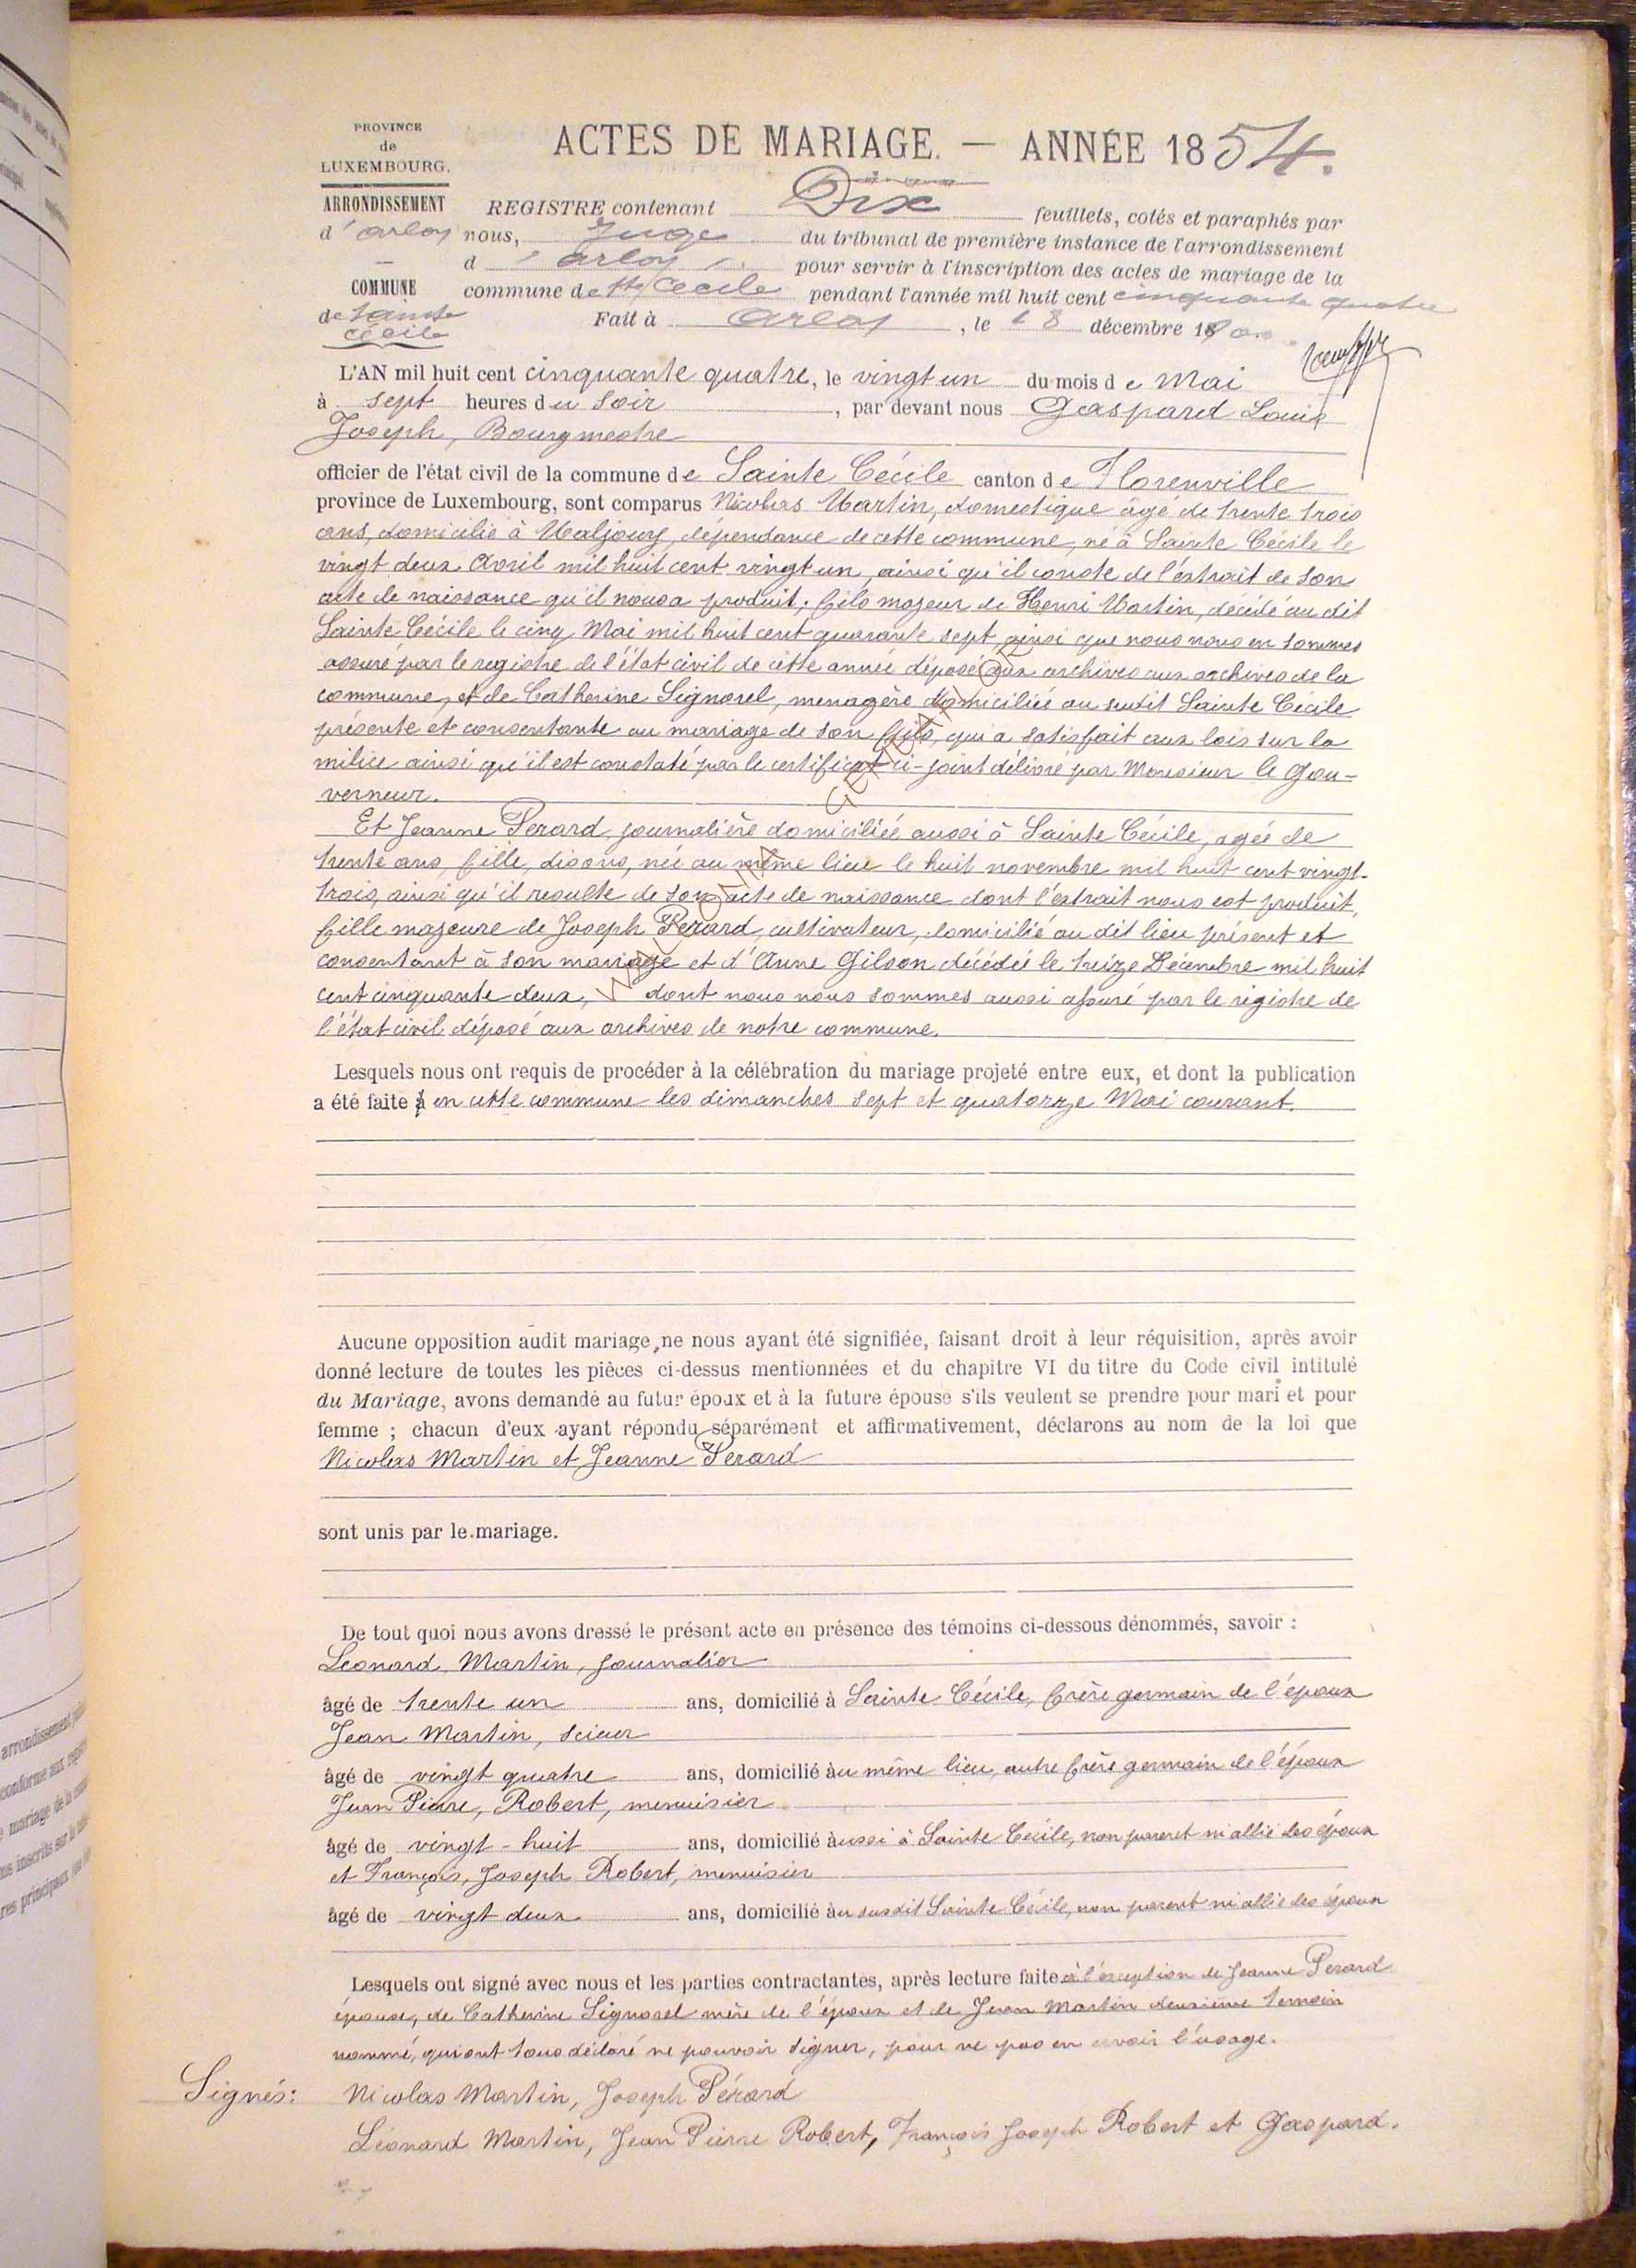 PROVINCE
de
LUXEMBOURG.
ARRONDISSEMENT
d'arlon
COMMUNE
de Sainte
Cécile
ACTES DE MARIAGE. — ANNÉE 1854.
REGISTRE contenant Dix feuillets, cotés et paraphés par
nous, Juge du tribunal de première instance de l'arrondissement
d'arlon pour servir à l'inscription des actes de mariage de la
commune de Ste Cecile pendant l'année mil huit cent cinquante quatre
Fait à Arlon, le 18 décembre
L'AN mil huit cent cinquante quatre, le vingt un du mois de Mai
à sept heures du soir, par devant nous Gaspard Louis
Joseph, Bourgmestre
officier de l'état civil de la commune de Sainte Cécile canton de Florenville
province de Luxembourg, sont comparus Nicolas Martin, domestique âgé de trente trois
ans, domicilié à dépendance de cette commune, né à Sainte Cécile le
vingt deux Avril mil huit cent vingt un, ainsi qu'il conste de l'extrait de son
acte de naissance qu'il nous a produit; fils majeur de Henri Martin, décédé au dit
Sainte Cécile le cinq Mai mil huit cent quarante sept, ainsi que nous nous en sommes
assuré par le registre de l'état civil de cette année déposé aux archives aux archives de la
commune, et de Catherine Signorel, menagère domiciliée au susdit Sainte Cécile
présente et consentante au mariage de son fils, qui a satisfait aux lois sur la
milice ainsi qu'il est constaté par le certificat ci-joint délivré par Monsieur le Gou-
verneur.
Et Jeanne Perard, journalière domiciliée aussi à Sainte Cécile, agée de
trente ans, fille, disons, née au même lieu le huit novembre mil huit cent vingt-
trois, ainsi qu'il resulte de son acte de naissance dont l'extrait nous est produit,
fille majeure de Joseph Perard, cultivateur, domicilié au dit lieu présent et
consentant à son mariage et d'Anne Gilson décédée le treize Décembre mil huit
cent cinquante deux, dont nous nous sommes aussi assuré par le régistre de
l'état civil déposé aux archives de notre commune.
Lesquels nous ont requis de procéder à la célébration du mariage projeté entre eux, et dont la publication
a été faite à en cette commune les dimanches sept et quatorze Mai courant.
Aucune opposition audit mariage ne nous ayant été signifiée, faisant droit à leur réquisition, après avoir
donné lecture de toutes les pièces ci-dessus mentionnées et du chapitre VI du titre du Code civil intitulé
du Mariage, avons demandé au futur époux et à la future épouse s'ils veulent se prendre pour mari et pour
femme ; chacun d'eux ayant répondu séparément et affirmativement, déclarons au nom de la loi que
Nicolas Martin et Jeanne Perard
sont unis par le mariage.
De tout quoi nous avons dressé le présent acte en présence des témoins ci-dessous dénommés, savoir :
Leonard Martin, journalier
âgé de trente un ans, domicilié à Sainte Cécile, frère germain de l'époux
Jean Martin, scieur
âgé de vingt quatre ans, domicilié au même lieu, autre frère germain de l'époux
Jean Pierre, Robert, menuisier
âgé de vingt-huit ans, domicilié aussi à Sainte Cécile, non parent ni allié des époux
et François, Joseph Robert, menuisier
âgé de vingt deux ans, domicilié au susdit Sainte Cécile, non parent ni allié des époux
Lesquels ont signé avec nous et les parties contractantes, après lecture faite à l'exception de Jeanne Perard
épouse, de Catherine Signorel mère de l'époux et de Jean Martin deuxième temoin
nommé, qui ont tous déclaré ne pouvoir signer, pour ne pas en avoir l'usage.
Signés: Nicolas Martin, Joseph Pérard
Léonard Martin, Jean Pierre Robert, François Joseph Robert et Gaspard.